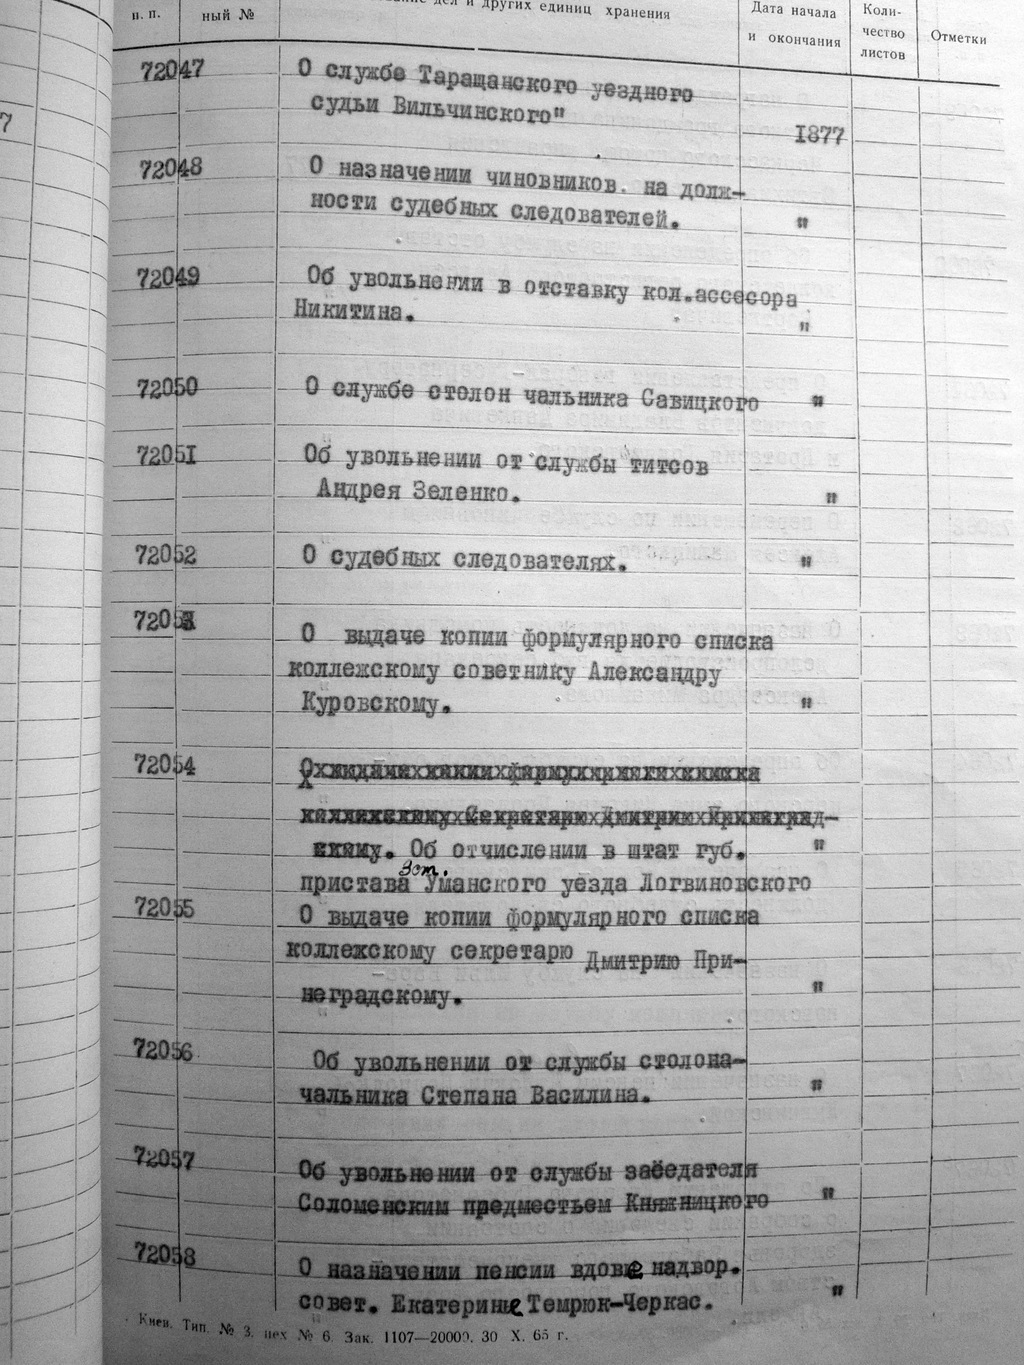 п. п. ный № дел и других единиц хранения Дата начала и окончания Коли-чество листов Отметки
7
72047 О службе Таращанского уездного
судьи Вильчинского" 1877
72048 О назначении чиновников на долж-
ности судебных следователей. "
72049 Об увольнении в отставку кол.ассесора
Никитина. "
72050 О службе столон чальника Савицкого "
72051 Об увольнении от службы титсов
Андрея Зеленко. "
72052 О судебных следователях. "
72053 О выдаче копии формулярного списка
коллежскому советнику Александру
Куровскому. "
72054
Об отчислении в штат губ. "
зст.
пристава Уманского уезда Логвиновского
72055 О выдаче копии формулярного списка
коллежскому секретарю Дмитрию При-
неградскому. "
72056 Об увольнении от службы столона-
чальника Степана Василина. "
72057 Об увольнении от службы заседателя
Соломенским предместьем Княжницкого "
72058 О назначении пенсии вдове надвор.
совет. Екатерине Темрюк-Черкас. "
Киев. Тип. № 3. цех № 6. Зак. 1107—20000. 30 X. 65 г.